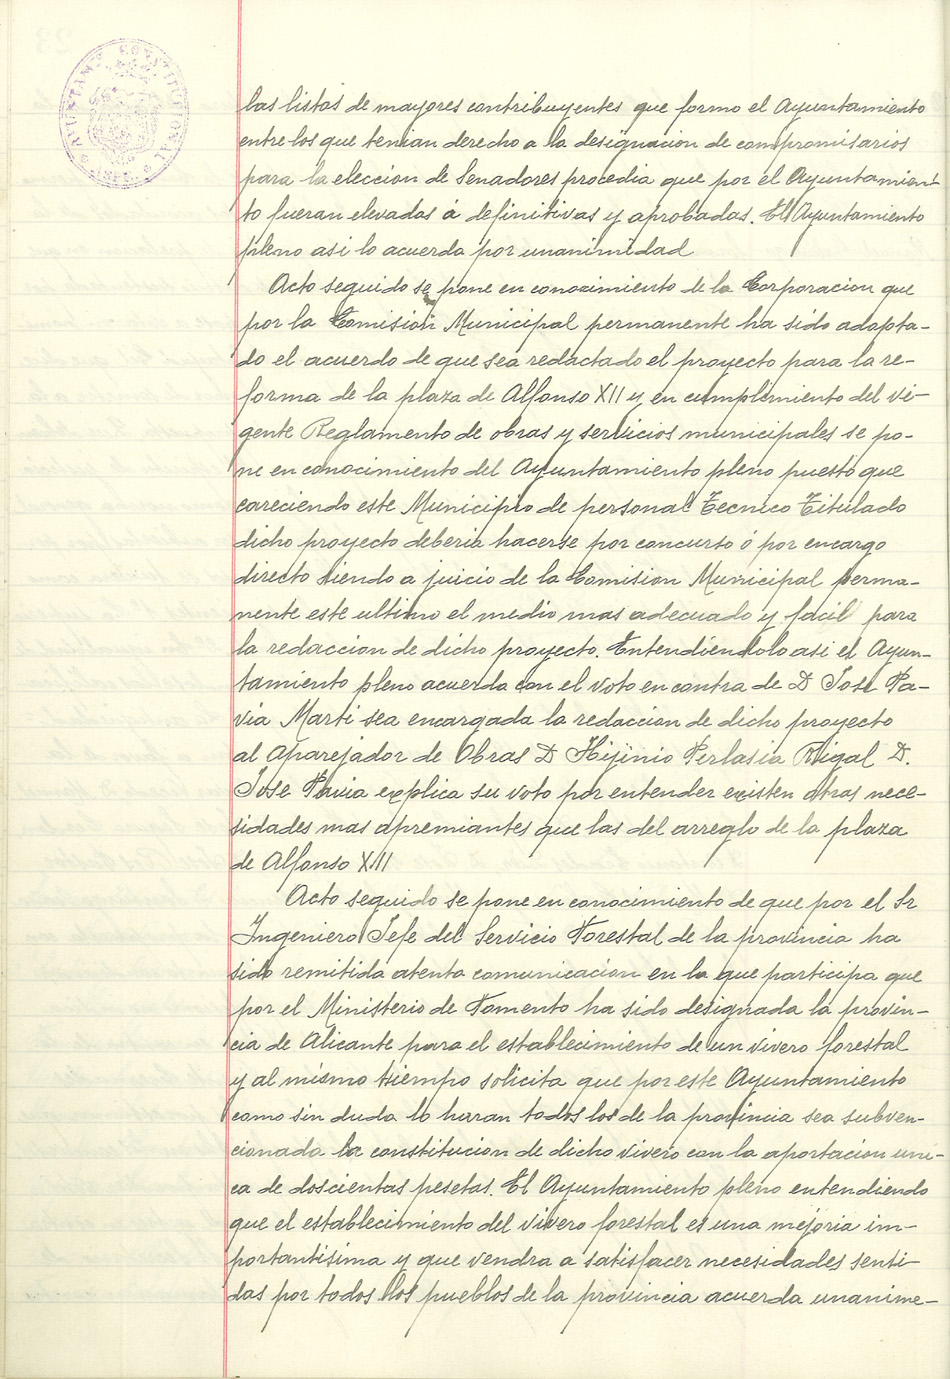 AYUNTAMTO CONSTITUCIONAL
las listas de mayores contribuyentes que formo el Ayuntamiento
entre los que tenian derecho a la designacion de compromisarios
para la eleccion de Senadores procedia que por el Ayuntamien-
to fueran elevadas á definitivas y aprobadas. El Ayuntamiento
pleno asi lo acuerda por unanimidad
Acto seguido se pone en conocimiento de la Corporacion que
por la Comisión Municipal permanente ha sido adopta-
do el acuerdo de que sea redactado el proyecto para la re-
forma de la plaza de Alfonso XII y en cumplimiento del vi-
gente Reglamento de obras y servicios municipales se po-
ne en conocimiento del Ayuntamiento pleno puesto que
careciendo este Municipio de personal Tecnico Titulado
dicho proyecto deberia hacerse por concurso ó por encargo
directo siendo a juicio de la Comision Municipal perma-
nente este ultimo el medio mas adecuado y facil para
la redaccion de dicho proyecto. Entendiendolo asi el Ayun-
tamiento pleno acuerda con el voto en contra de D José Pa-
via Marti sea encargada la redaccion de dicho proyecto
al Aparejador de Obras D Hijinio Perlasia Rigal D.
Jose Pavia explica su voto por entender existen otras nece-
sidades mas apremiantes que las del arreglo de la plaza
de Alfonso XII
Acto seguido se pone en conocimiento de que por el Sr
Ingeniero Jefe del Servicio Forestal de la provincia ha
sido remitida atenta comunicacion en la que participa que
por el Ministerio de Fomento ha sido designada la provin-
cia de Alicante para el establecimiento de un vivero forestal
y al mismo tiempo solicita que por este Ayuntamiento
como sin duda lo haran todos los de la provincia sea subven-
cionada la constitucion de dicho vivero con la aportacion uni-
ca de doscientas pesetas. El Ayuntamiento pleno entendiendo
que el establecimiento del vivero forestal es una mejoria im-
portantisima y que vendra a satisfacer necesidades senti-
das por todos los pueblos de la provincia acuerda unanime-